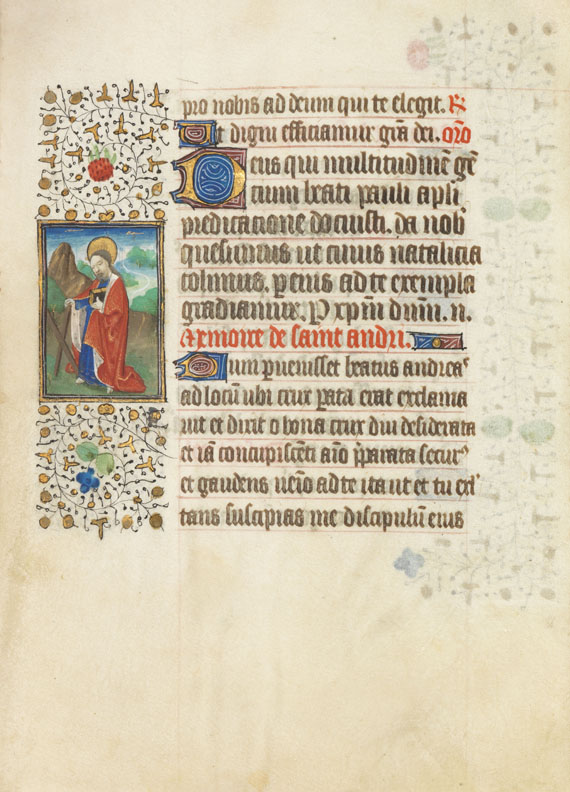 pro nobis ad deum qui te elegit. R
Ut digni efficiamur gr̄a dei. or̄o
Deus qui multitudinē gē
tium beati pauli apl̄i
predicatione docuisti. da nob̄
quesumus ut cuius natalicia
colimus. eius ad te exempla
gradiamur. P xp̄m dnm̄. n.
Memoire de saint andri.
Cum peruenisset beatus andreaꝰ
ad locū ubi crux parata erat exclama
uit et dixit o bona crux diu desiderata
et iā concupiscēti aīo preparata securꝰ
et gaudens uenio ad te ita ut et tu exl̄
tans suscipias me discipulū eius